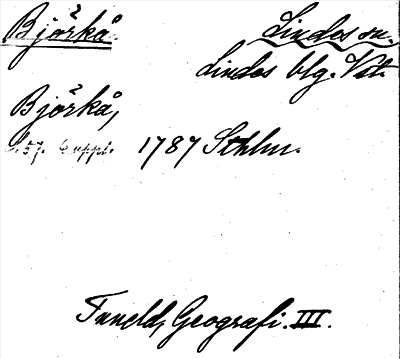 Björkå
Lindes sn.
Lindes blg. Vstl.
Björkå,
s. 57. Suppl. 1787 Sthlm.
Tuneld, Geografi. III.